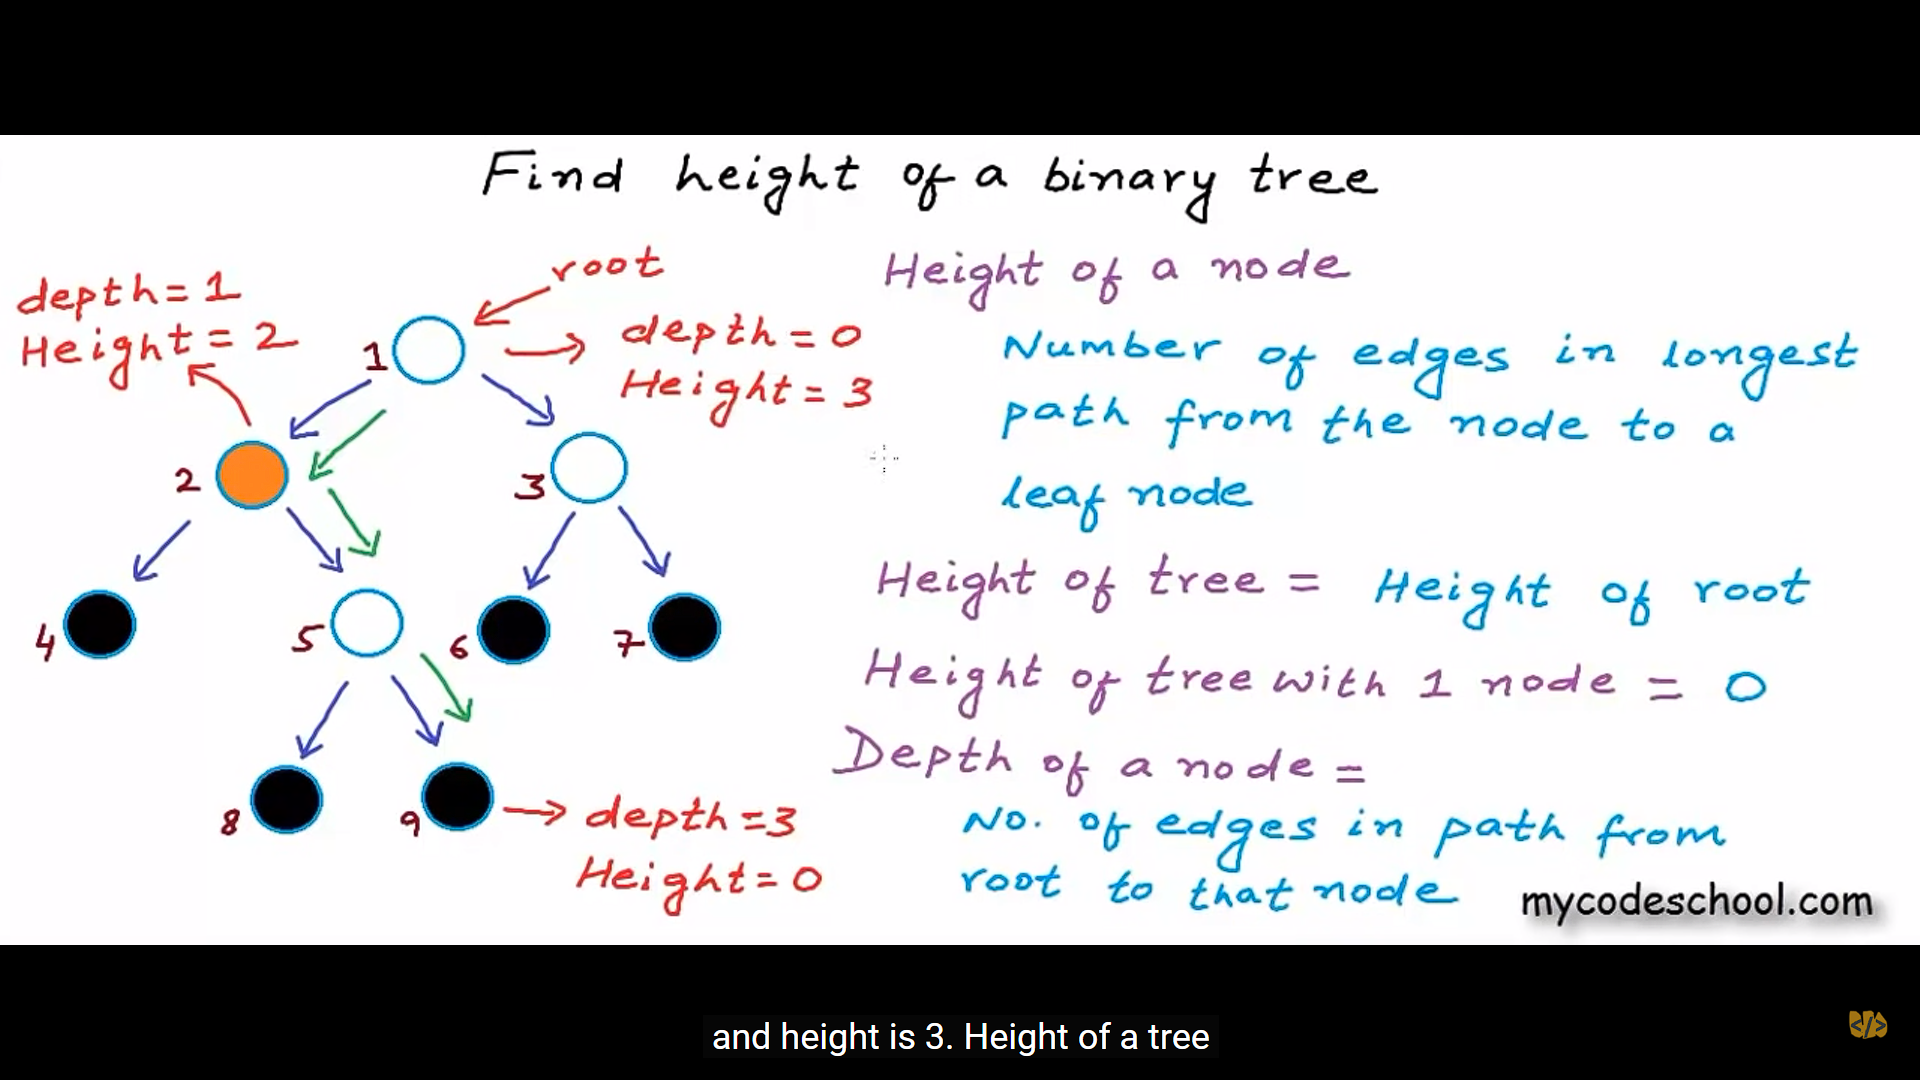 Find height of a binary tree
depth = 1
Height = 2
root
1
depth = 0
Height = 3
2
3
4
5
6
7
8
9
depth = 3
Height = 0
Height of a node
Number of edges in longest
path from the node to a
leaf node
Height of tree = Height of root
Height of tree with 1 node = 0
Depth of a node =
No. of edges in path from
root to that node
mycodeschool.com
and height is 3. Height of a tree